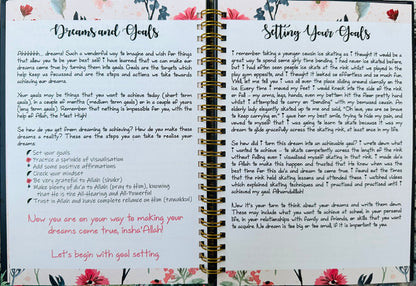 Dreams and Goals
Ahhhhh... dreams! Such a wonderful way to imagine and wish for things
that allow you to be your best self. I have learned that we can make our
dreams come true by turning them into goals. Goals are the targets which
help keep us focussed and are the steps and actions we take towards
achieving our dreams.
Your goals may be things that you want to achieve today (short term
goals), in a couple of months (medium term goals) or in a couple of years
(long term goals). Remember that nothing is impossible for you, with the
help of Allah, the Most High!
So how do you get from dreaming to achieving? How do you make these
dreams a reality? These are the steps you can take to realise your
dreams:
Set your goals
Practice a sprinkle of visualisation
Add some positive affirmations
Check your mindset
Be very grateful to Allah (shukr)
Make plenty of du'a to Allah (pray to Him), knowing
that He is the All-Hearing and All-Powerful
Trust in Allah and have complete reliance on Him (tawakkul)
Now you are on your way to making your
dreams come true, insha'Allah!
Let's begin with goal setting.
Setting Your Goals
I remember taking a younger cousin ice skating as I thought it would be a
great way to spend some girly time bonding. I had never ice skated before,
but I had often seen people ice skate at the rink whilst we played in the
play gym opposite, and I thought it looked so effortless and so much fun.
Well, let me tell you I was all over the place sliding around clumsily on the
ice. Every time I moved my feet I would knock into the side of the rink
or fall - my arms, legs, hands, even my bottom hit the floor pretty hard
whilst I attempted to carry on "bonding" with my bemused cousin. An
elderly lady elegantly skated up to me and said, "Oh love, you are so brave
to keep carrying on." I gave her my best smile, trying to hide my pain, and
vowed to myself that I was going to learn to skate because it was my
dream to glide gracefully across the skating rink, at least once in my life.
So how did I turn this dream into an achievable goal? I wrote down what
I wanted to achieve - to skate competently across the length of the rink
without falling over. I visualised myself skating in that rink. I made du'a
to Allah to make this happen and trusted that He knew when was the
best time for this du'a and dream to come true. I found out the times
that the rink held skating lessons and attended these. I watched videos
which explained skating techniques and I practised and practised until I
achieved my goal. Alhamdulillah!
Now it's your turn to think about your dreams and write them down.
These may include what you want to achieve at school, in your personal
life, in your relationships with family and friends, or skills that you want
to acquire. No dream is too big or too small, if it is important to you.